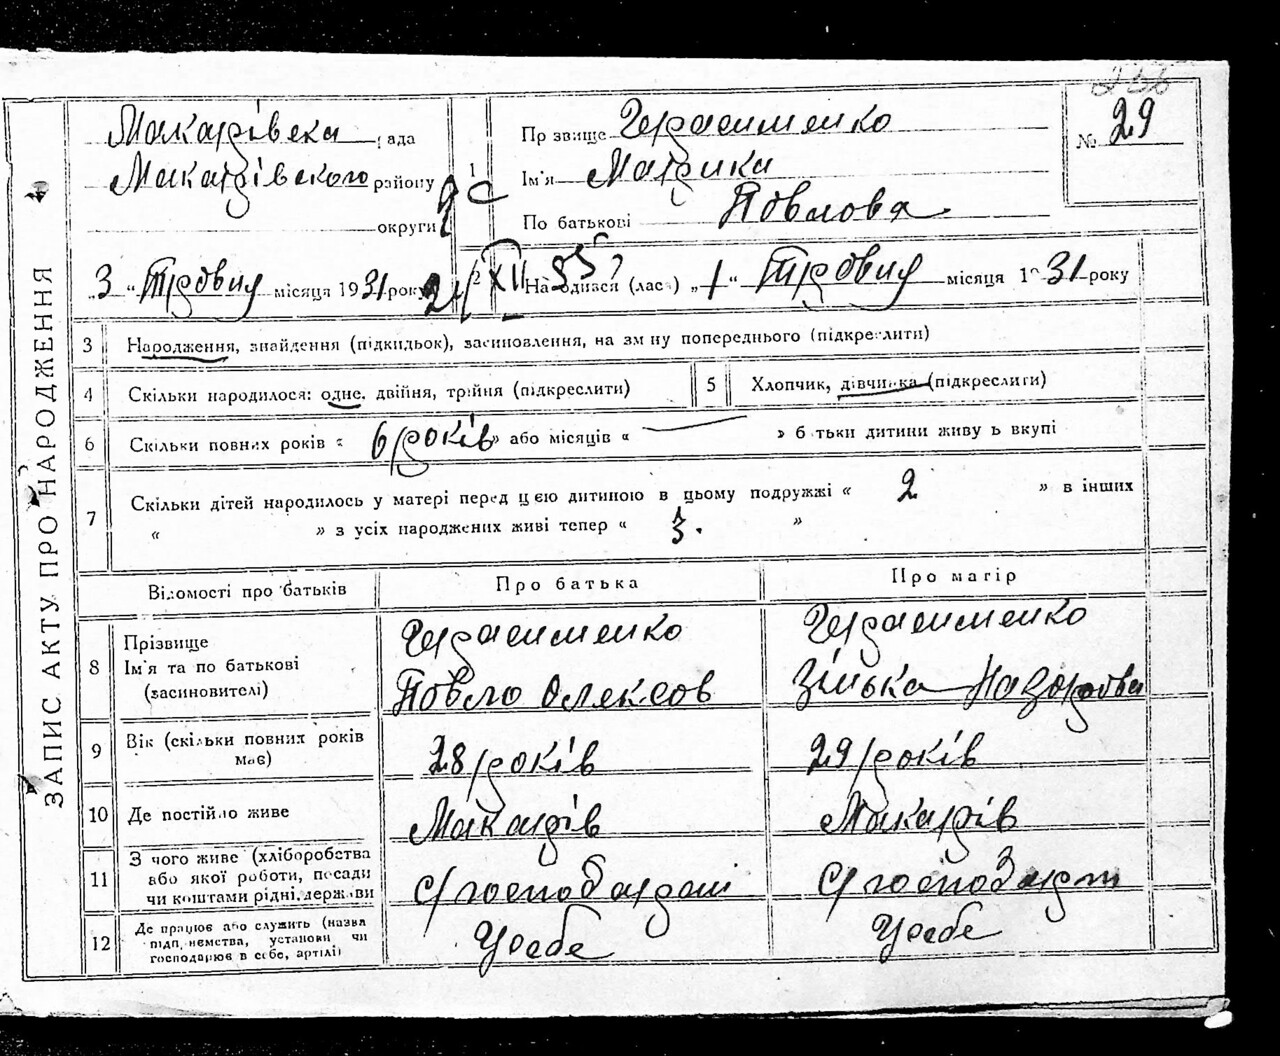 ЗАПИС АКТУ ПРО НАРОДЖЕННЯ
236
№ 29
Макарівська рада
Макарівского району
округи
1
Прізвище Герасименко
Ім'я Мотрика
По батькові Повлова
„3 “ Тровня місяця 1931 року
2/XII 55
2 Народився (лась) „1 “ Тровня місяця 1931 року
3 Народження, знайдення (підкидьок), засиновлення, на зміну попереднього (підкреслити)
4 Скільки народилося: одне, двійня, трійня (підкреслити)
5 Хлопчик, дівчинка (підкреслити)
6 Скільки повних років « 6 років » або місяців « — » батьки дитини живуть вкупі
7 Скільки дітей народилось у матері перед цією дитиною в цьому подружжі « 2 » в інших
« » з усіх народжених живі тепер « 3. »
Відомості про батьків Про батька Про матір
8 Прізвище Герасименко Герасименко
Ім'я та по батькові Повло Олексов Зінька Назарова
(засиновителі)
9 Вік (скільки повних років має) 28 років 29 років
10 Де постійно живе Макарів Макарів
11 З чого живе (хліборобства
або якої роботи, посади
чи коштами рідні, держави С/господарст С/господарст
12 Де працює або служить (назва
підприємства, установи чи
господарює в себе, артілі) У себе У себе